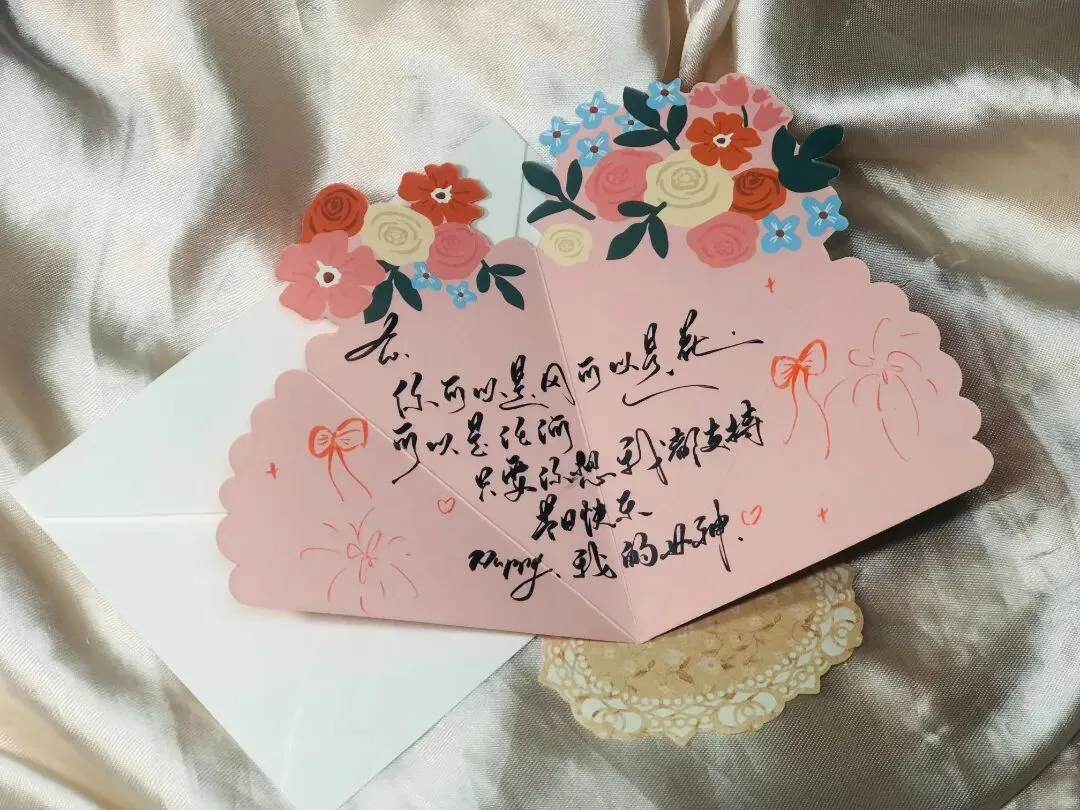 你可以是风可以是花.
可以是江河
只要你想我都支持
节日快乐
Happy.我的女神.